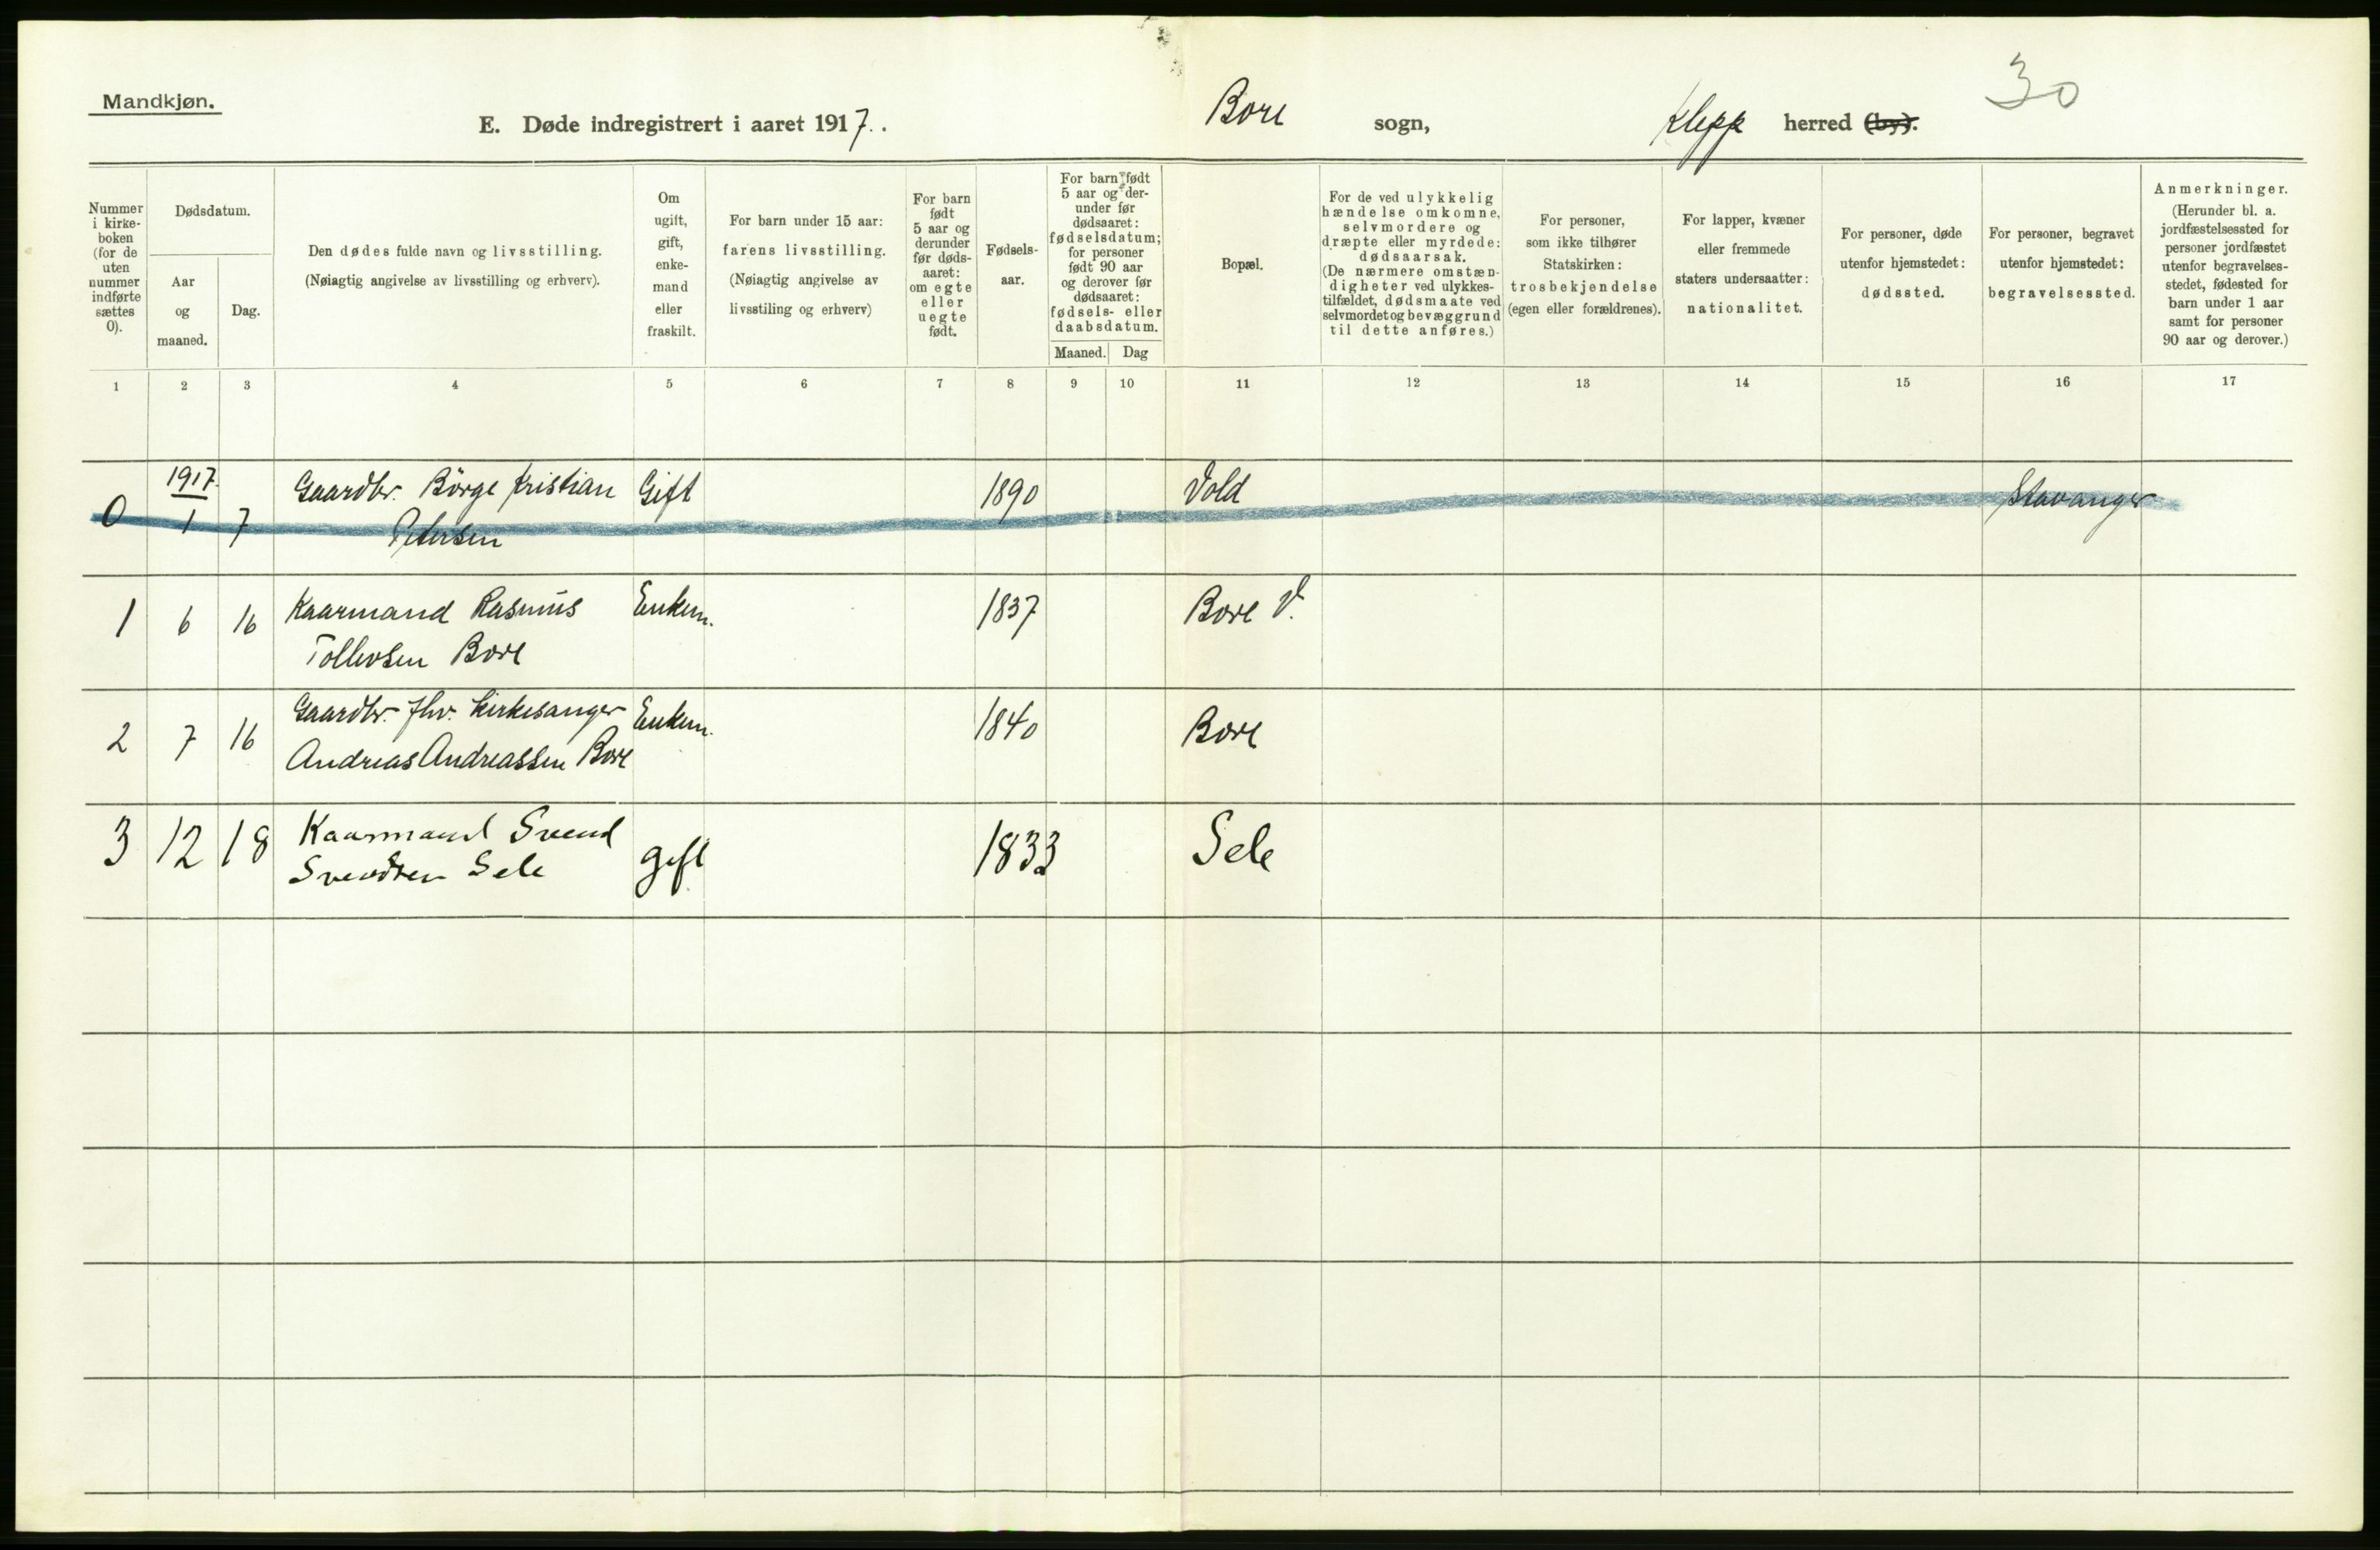 Mandkjøn.
30
E. Døde indregistrert i aaret 1917.
Bore sogn,
Klepp herred (by).
Nummer i kirke-boken (for de uten nummer indførte sættes 0).
Dødsdatum.
Aar og maaned.
Dag.
Den dødes fulde navn og livsstilling.
(Nøiagtig angivelse av livsstilling og erhverv).
Om ugift, gift, enke-mand eller fraskilt.
For barn under 15 aar: farens livsstilling.
(Nøiagtig angivelse av livsstiling og erhverv)
For barn født 5 aar og derunder før døds-aaret: om egte eller uegte født.
Fødsels-aar.
For barn født 5 aar og der-under før dødsaaret: fødselsdatum; for personer født 90 aar og derover før dødsaaret: fødsels- eller daabsdatum.
Maaned.
Dag
Bopæl.
For de ved ulykkelig hændelse omkomne, selvmordere og dræpte eller myrdede: dødsaarsak.
(De nærmere omstæn-digheter ved ulykkes-tilfældet, dødsmaate ved selvmordet og bevæggrund til dette anføres.)
For personer, som ikke tilhører Statskirken: trosbekjendelse (egen eller forældrenes).
For lapper, kvæner eller fremmede staters undersaatter: nationalitet.
For personer, døde utenfor hjemstedet: dødssted.
For personer, begravet utenfor hjemstedet: begravelsessted.
Anmerkninger.
(Herunder bl. a. jordfæstelsessted for personer jordfæstet utenfor begravelses-stedet, fødested for barn under 1 aar samt for personer 90 aar og derover.)
1 2 3 4 5 6 7 8 9 10 11 12 13 14 15 16 17
1917.
0 1 7 Gaardbr. Börge Kristian Gift 1890 Vold Stavanger
Petersen
1 6 16 Kaarmand Rasmus Enkem. 1837 Bore V.
Tollevsen Bore
2 7 16 Gaardbr. fhv. kirkesanger Enkem. 1840 Bore
Andreas Andreassen Bore
3 12 18 Kaarmand Svend gift 1833 Sele
Svendsen Sele